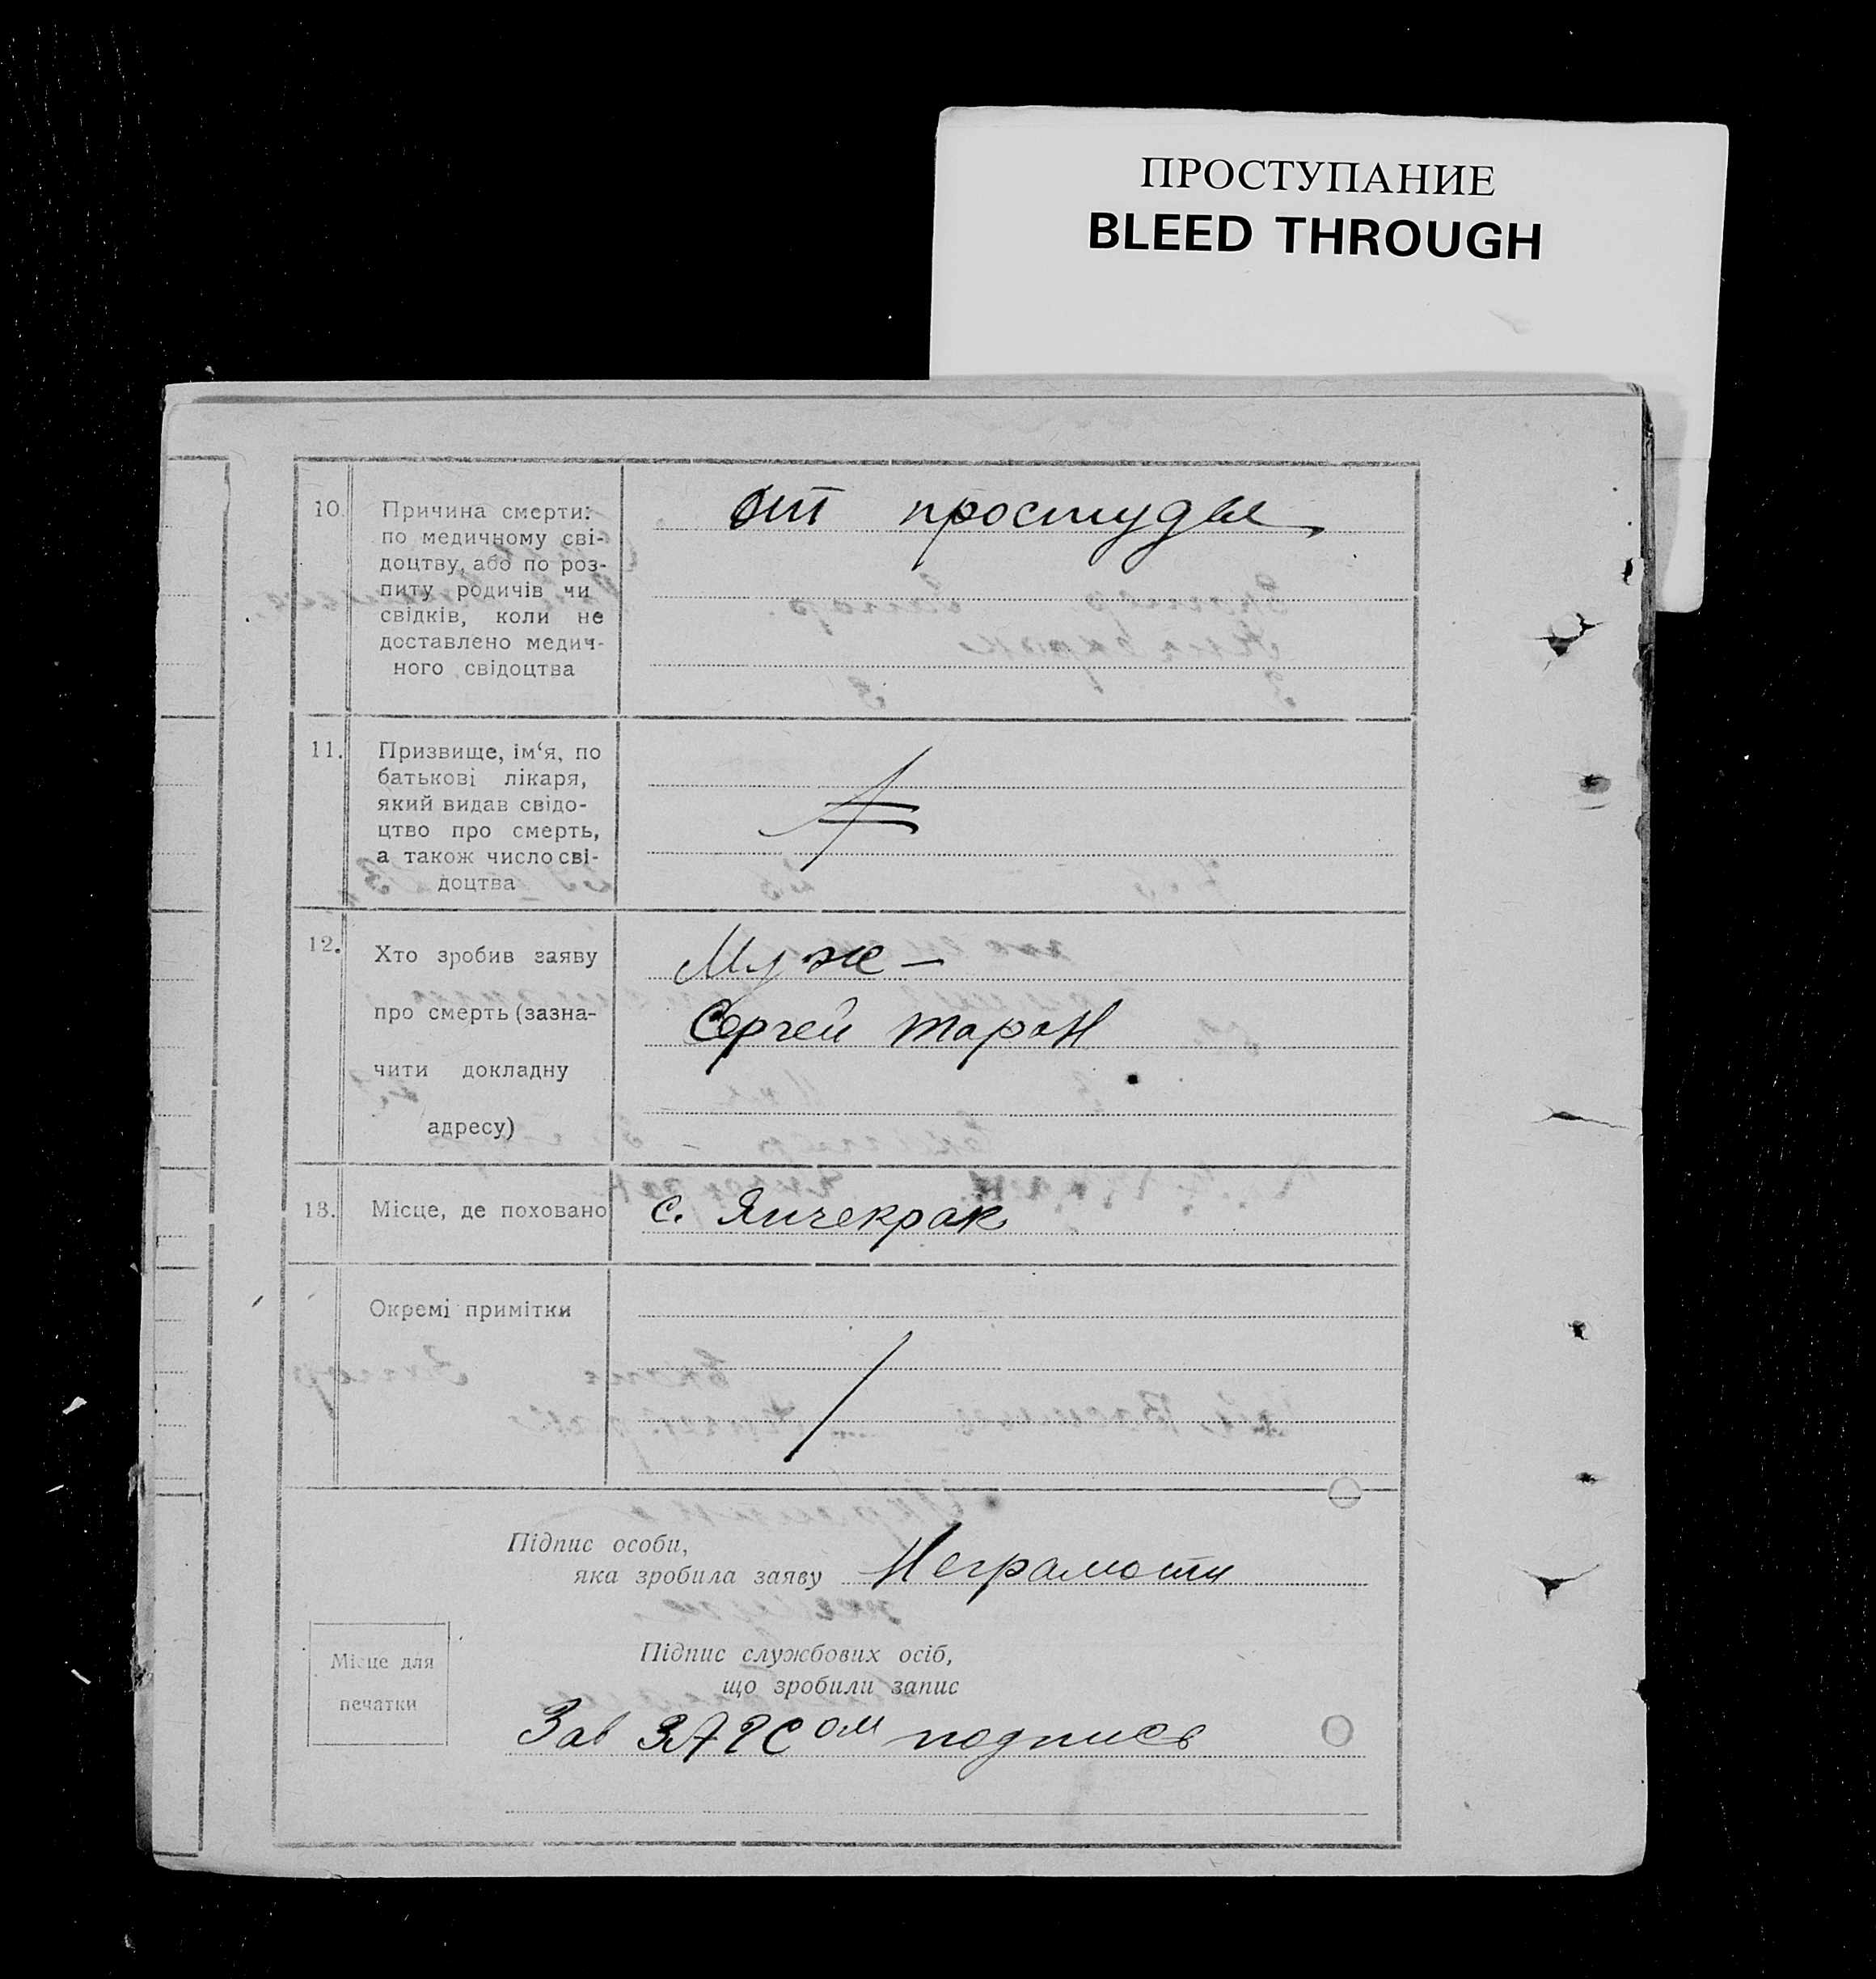 ПРОСТУПАНИЕ
BLEED THROUGH
10.
Причина смерти:
по медичному сві-
доцтву, або по роз-
питу родичів чи
свідків, коли не
доставлено медич-
ного свідоцтва
от простуды
11.
Призвище, ім‘я, по
батькові лікаря,
який видав свідо-
цтво про смерть,
а також число сві-
доцтва
12.
Хто зробив заяву
про смерть (зазна-
чити докладну
адресу)
Муж –
Сергей Таран
13.
Місце, де поховано
с. Янчекрак
Окремі примітки
Підпис особи,
яка зробила заяву
Неграмотн
Місце для
печатки
Підпис службових осіб,
що зробили запис
Зав ЗАГСом подпись